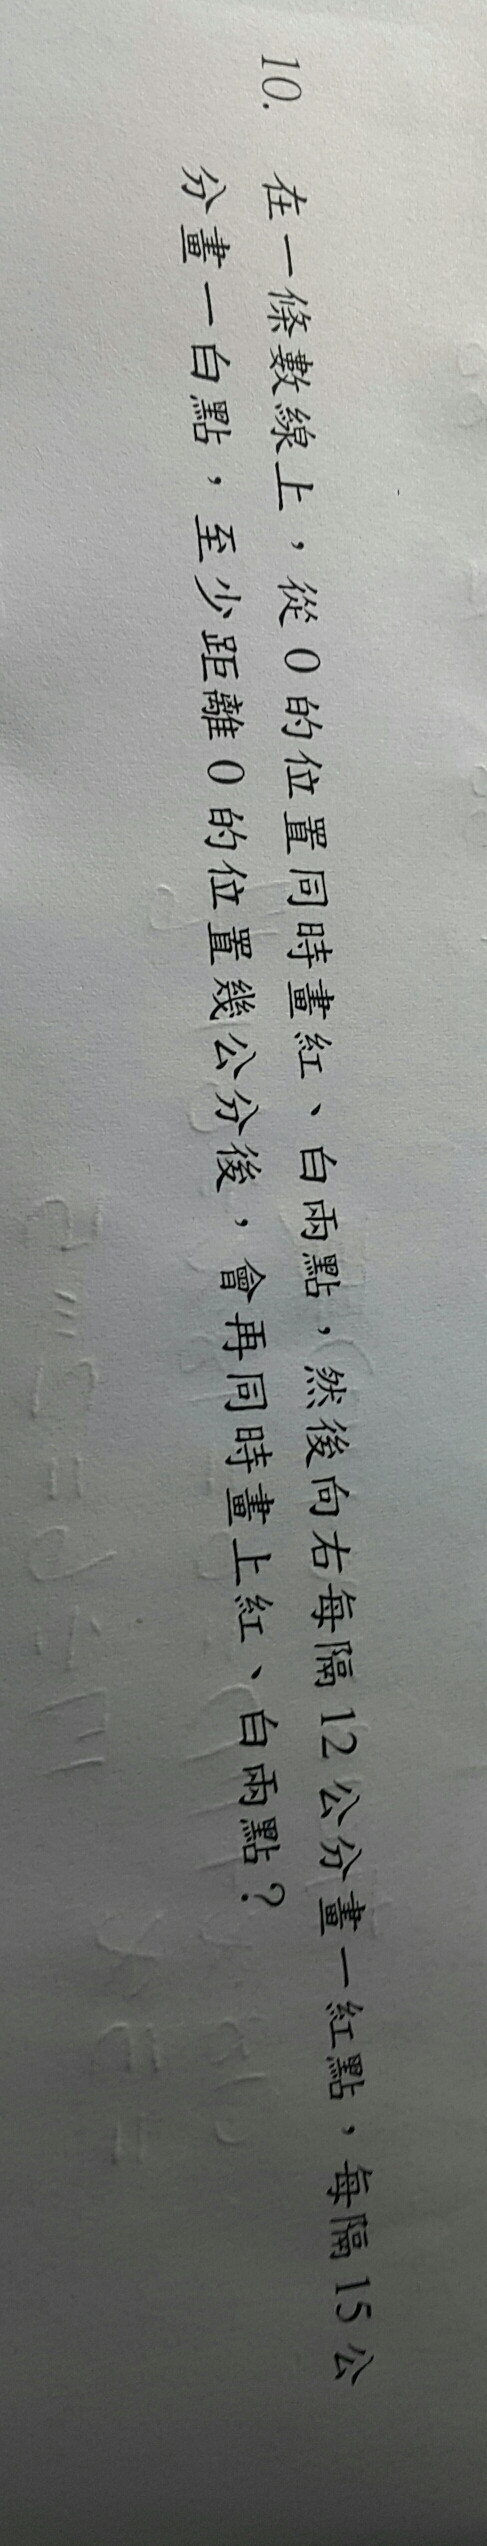 10. 在一條數線上，從0的位置同時畫紅、白兩點，然後向右每隔12公分畫一紅點，每隔15公
分畫一白點，至少距離0的位置幾公分後，會再同時畫上紅、白兩點？